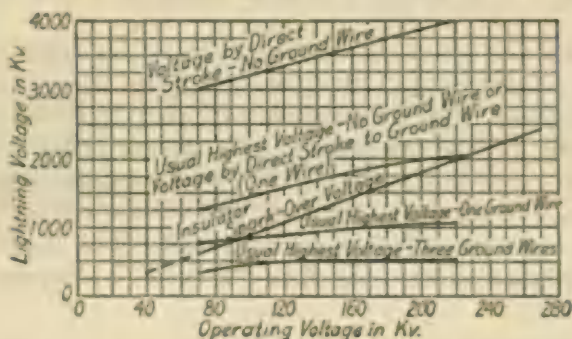 4000
3000
2000
1000
0
Lightning Voltage in Kv.
Voltage by Direct
Stroke-No Ground Wire
Usual Highest Voltage-No Ground Wire or
Voltage by Direct Stroke to Ground Wire
(One Wire)
Insulator
Spark-Over Voltage
Usual Highest Voltage-One Ground Wire
Usual Highest Voltage-Three Ground Wires
0 40 80 120 160 200 240 280
Operating Voltage in Kv.